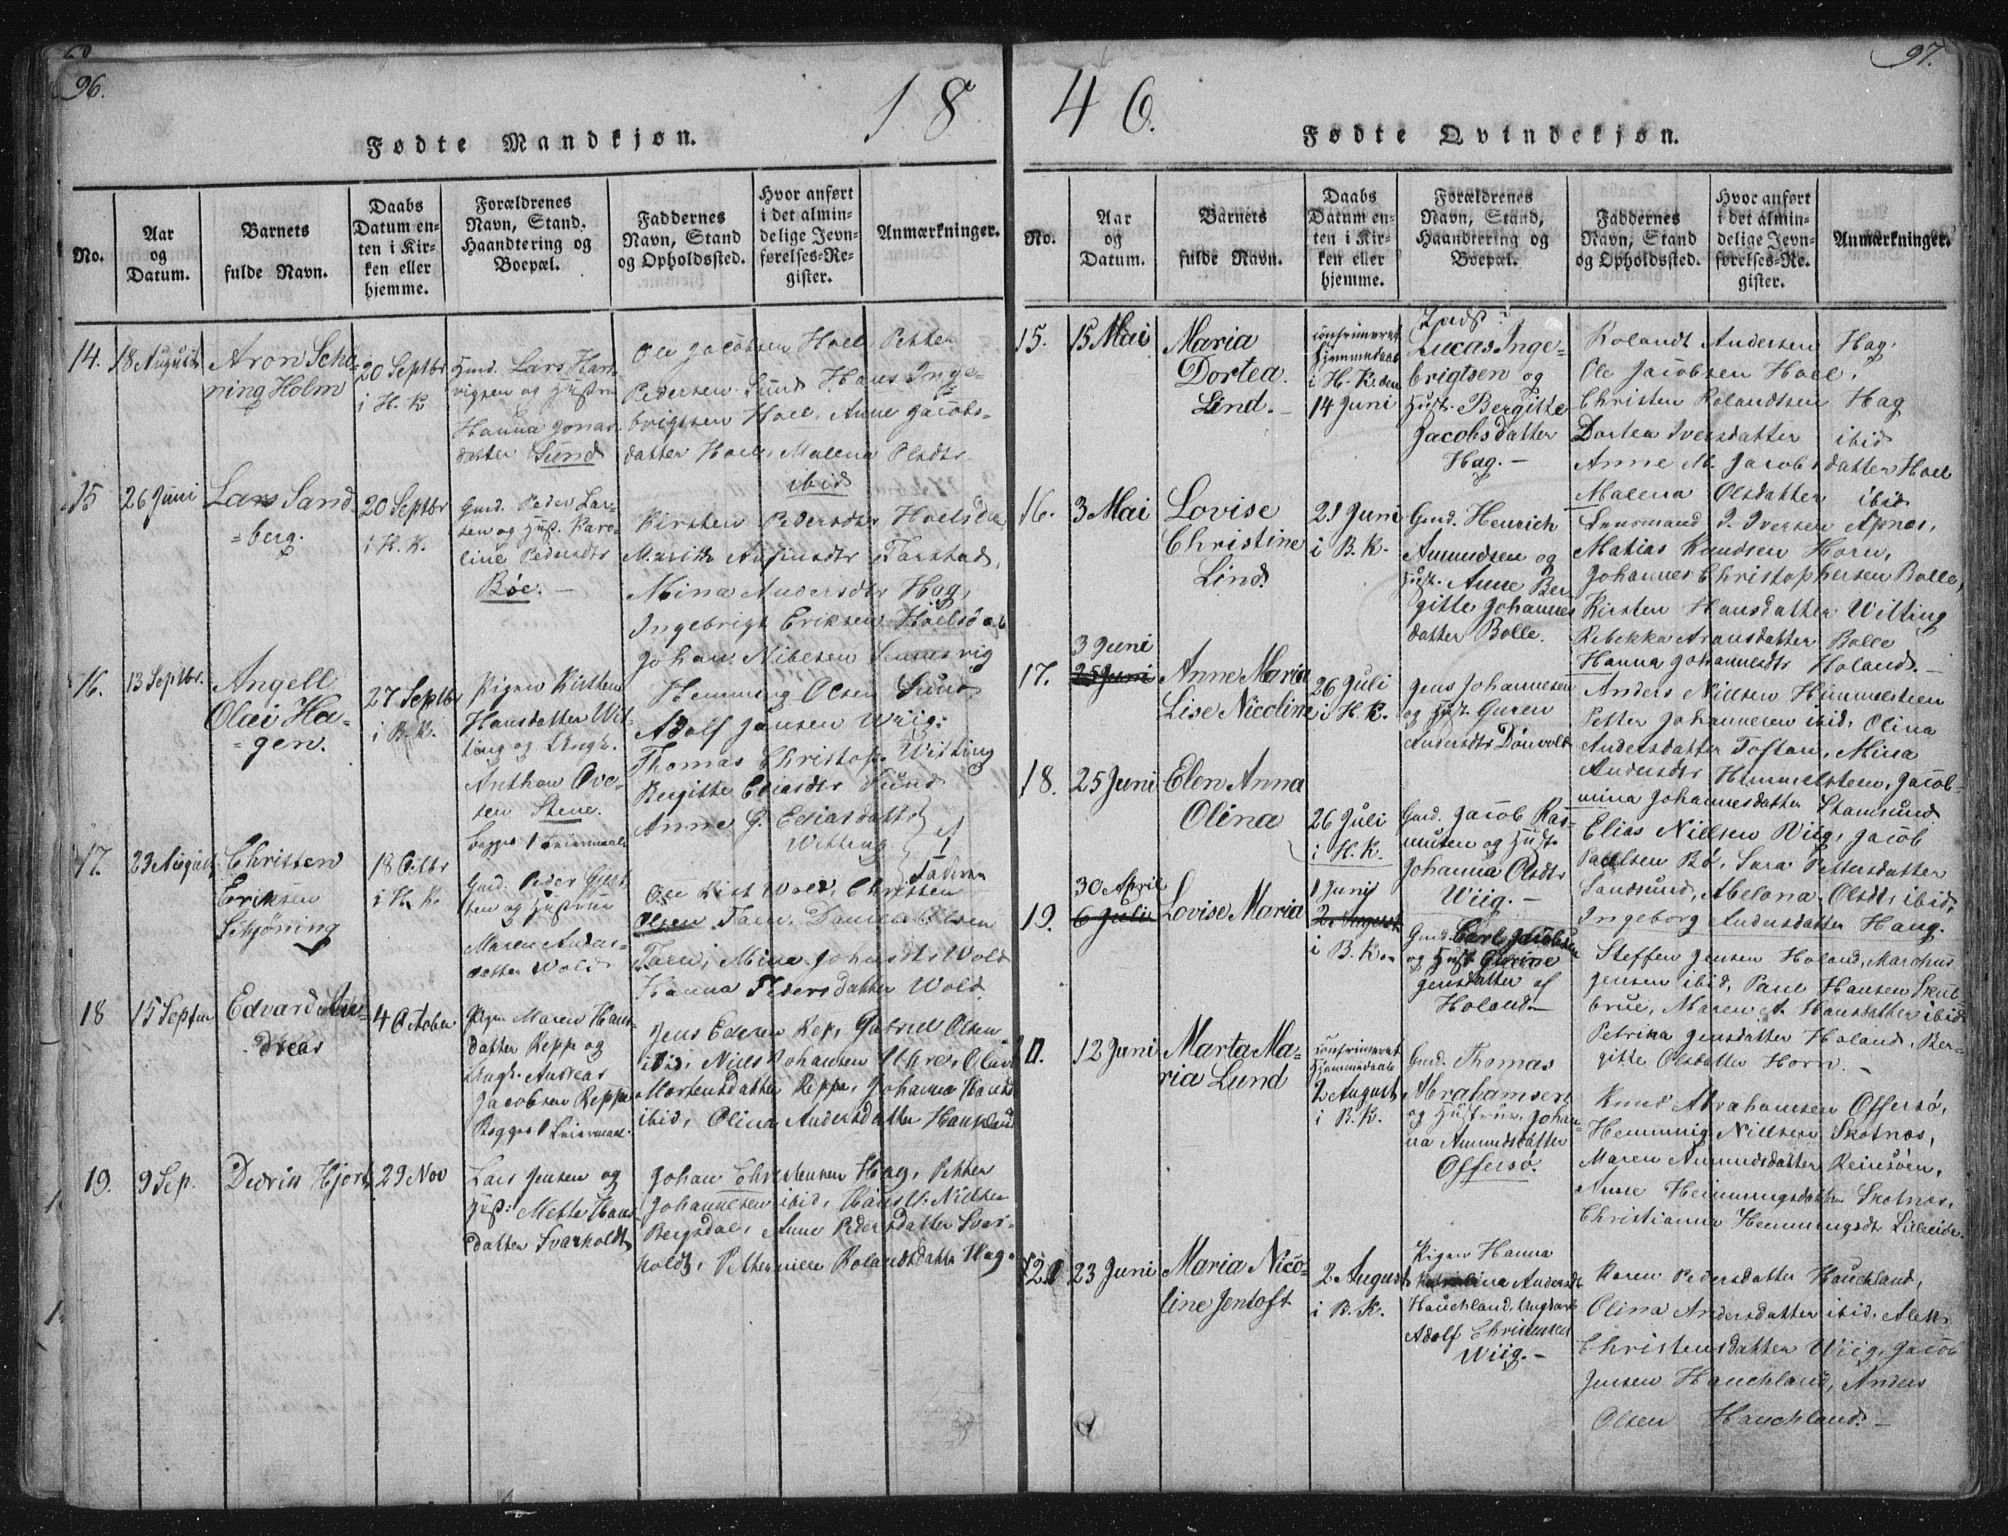 96.
18
Fødte Mandkjøn.
No.
Aar
og
Datum.
Barnets
fulde Navn.
Daabs
Datum en-
ten i Kir-
ken eller
hjemme.
Forældrenes
Navn, Stand,
Haandtering og
Boepæl.
Faddernes
Navn, Stand
og Opholdssted.
Hvor anført
i det almin-
delige Jevn-
førelses-Re-
gister.
Anmærkninger.
14.
18 August
Aron Schø-
ning Holm
20 Septbr
i H. K
Gmd. Lars Hart-
vigsen og Hustru
Hanna Jonas-
datter Sund
Ole Jacobsen Hoel Petter
Pedersen Sund Hans Inge-
brigtsen Hoel, Anne Jacobs-
datter Hoel, Malena Olsdtr
ibid
15
26 Juni
Lars Sand-
berg.
20 Septbr
i H. K.
Gmd. Peder Lar-
sen og Hust. Karo-
line Pedersdtr
Bøe. -
Kirsten Pedersdtr
Marith Farstad,
Mina Andersdtr Hag,
Ingebrigt Eriksen
Johan
16.
13 Septbr.
Angell
Olai Ha-
gen.
27 Septbr
i B. K.
Pigen Kirsten
Hansdatter Wit-
ting og Ungk.
Anthon Ove-
sen Stene.
Begges 1 Leiermaal
Hemming Olsen Sund
Adolf Jensen Wiig.
Thomas Christof. Witting
Bergitte Eliasdtr Sund
Anne G. Eliasdatter
Witting
17.
23 August
Christen
Eriksen
Schjøning
18 Octbr
i H. K.
Gmd. Peder
og Hustrue
Maren Anders-
datter Wold
Ole Wold, Christen
Olsen Taen, Daniel Olsen
Taen, Mine Johnsdtr Wold
Hanna Pedersdatter Wold.
18
15 Septbr
Edvard An-
dreas
4 October
Pigen Maren Hans-
datter Reppe og
Ungk. Andreas
Jacobsen Reppe
Begges 1 Leiermaal.
Jens Rep, Gabriel Olsen
ibid, Niels Johansen Olava
Mortensdatter Reppe, Johanna
ibid, Olina Andersdatter Haukland
19.
9 Sep.
Didrik Hjort
29 Nov
Lars Jensen og
Hust: Mette Hans
datter Svarholdt
Johan Christensen Hag, Petter
Johannesen ibid, Nielsen
Bergsdal, Anne Pedersdatter Svar-
holdt, Rolandsdatter Hag.
97.
46.
Fødte Qvindekjøn.
No.
Aar
og
Datum.
Barnets
fulde Navn.
Daabs
Datum en-
ten i Kir-
ken eller
hjemme.
Forældrenes
Navn, Stand,
Haandtering og
Boepæl.
Faddernes
Navn, Stand
og Opholdssted.
Hvor anført
i det almin-
delige Jevn-
førelses-Re-
gister.
Anmærkninger.
15.
15 Mai
Maria
Dortea
Lind. -
confirmeret
Hjemmedaab
i H. K. den
14 Juni
Lucas Inge-
brigtsen og
Hust. Bergitte
Jacobsdatter
Hag. -
Rolandt Andersen Hag,
Ole Jacobsen Hoel,
Christen Rolandtsen Hag
Dortea Iversdatter ibid
Anne M. Jacobsdatter Hoel
Malena Olsdatter ibid
16.
3 Mai
Lovise
Christine
Lind.
21 Juni
i B. K.
Gmd. Henrich
Amundsen og
Hust. Anne Ber-
gitte Johannes
datter Bolle.
Lensmand I. Iversen Apnes,
Matias Knudsen Horn,
Johannes Christophersen Bolle,
Kirsten Hansdatter Witting
Rebekka Aronsdatter Bolle
Hanna Johannesdtr Holand. -
17.
3 Juni
25 Juni
Anne Maria
Lise Nicoline
26 Juli
i H. K.
Jens Johannesen
og Hust. Guren
Andersdtr Dønvold
Anders Nielsen Himmelsteen
Petter Johannesen ibid, Olina
Andersdatter Toftan, Mina
Andersdtr Himmelsteen, Jacob-
mina Johannesdatter Stamsund
18.
25 Juni
Elen Anna
Olina
26 Juli
i H. K.
Gmd. Jacob Ras-
musen og Hust.
Johanna Olsdtr
Wiig. -
Elias Nielsen Wiig, Jacob
Paulsen Bø, Sara Pettersdatter
Sandsund, Abelona Olsdtr ibid,
Ingeborg Andersdatter Haug.
19.
30 April
6 Julii
Lovise Maria
1 Junij
2 August
i B. K.
Gmd. Carl Jacobsen
og Hust. Gurine
Jensdatter af
Holand. -
Steffen Jensen Holand, Marchus
Jensen ibid, Paul Hansen Skul-
bru, Maren A. Hansdatter ibid
Petrika Jensdatter Holand, Ber-
gitte Olsdatter Horn. -
12 Juni
Marta Ma-
ria Lund
confirmeret
Hjemmedaab
2 August
i B. K.
Gmd. Thomas
Abrahamsen
og Hustrue, Johan-
na Amundsdatter
Offersø.
Knud Abrahamsen Offersø,
Hemming Nielsen Skotnes,
Maren Amundsdatter Reinsøen,
Anne Hemmingsdatter Skotnes,
Christianna Hemmingsdt Lilleide.
21
23 Juni
Maria Nico-
line Jentoft
2 August
i B. K.
Pigen Hanna
Andersdt
Hauchland, Ungkarl
Adolf Christensen
Wiig. -
Karen Pedersdatter Hauchland,
Olina Andersdatter ibid, Alett
Christensdatter Wiig, Jacob
Jensen Hauchland, Anders
Olsen Hauchland. -